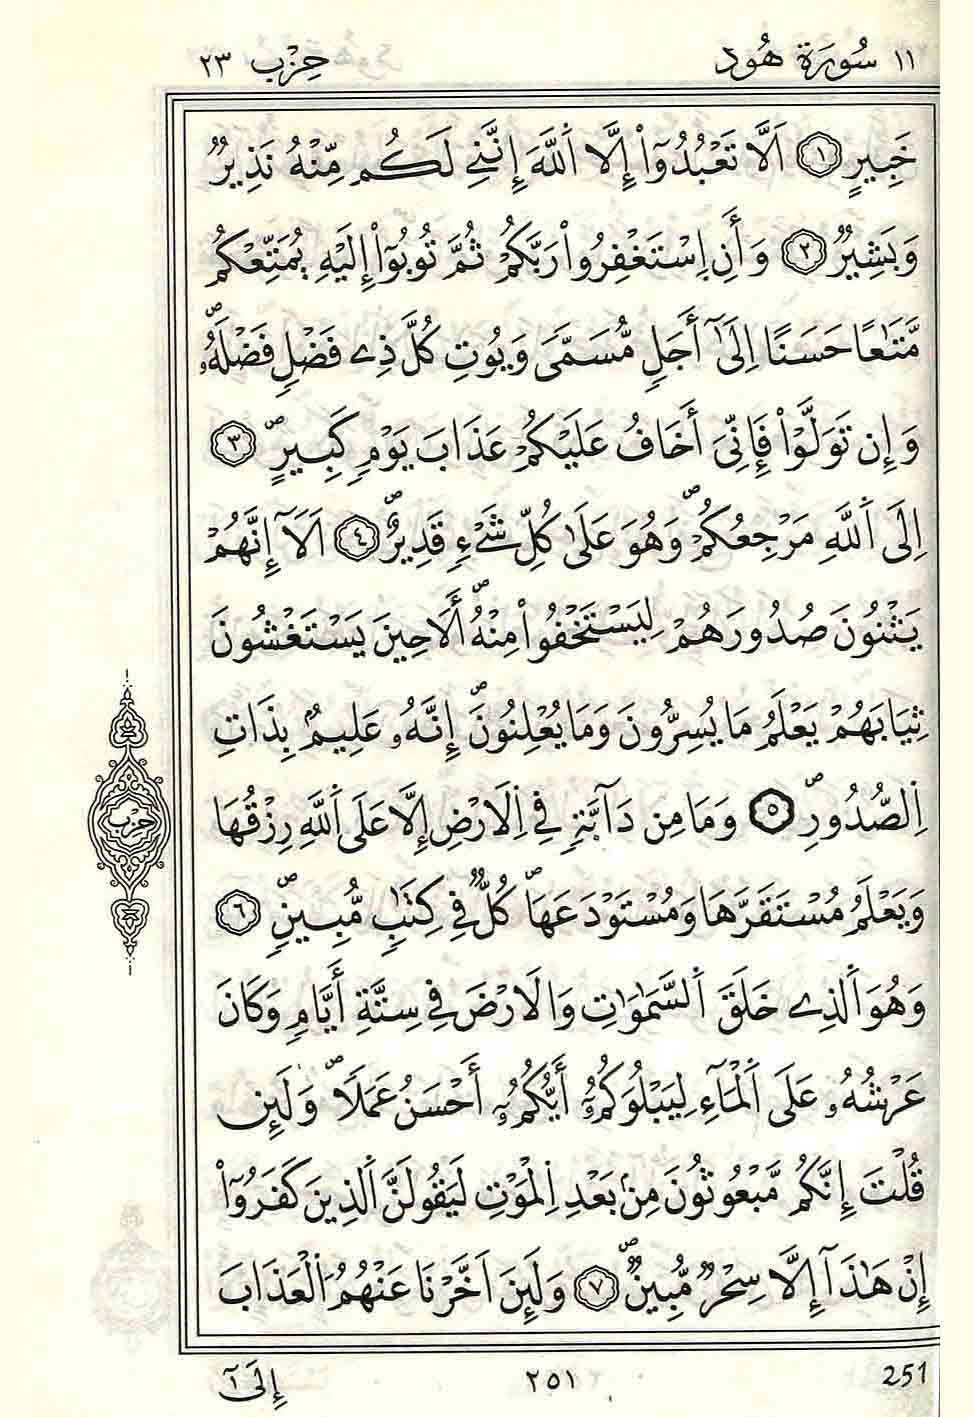 ١١ سُورَة هُود حِزْب ٢٣
خَبِيرٍ ١ اَلَّا تَعْبُدُوٓاْ إِلَّا اَللَّهَ إِنَّنِے لَكُم مِّنْهُ نَذِيرٌ
وَبَشِيرٌ ٢ وَأَنِ اِسْتَغْفِرُواْ رَبَّكُمْ ثُمَّ تُوبُوٓاْ إِلَيْهِ يُمَتِّعْكُم
مَّتَٰعاً حَسَنًا اِلَىٰٓ أَجَلٍ مُّسَمّىٗ وَيُوتِ كُلَّ ذِے فَضْلٍ فَضْلَهُۥ
وَإِن تَوَلَّوْاْ فَإِنِّيَ أَخَافُ عَلَيْكُمْ عَذَابَ يَوْمٍ كَبِيرٍ ٣
اِلَى اَللَّهِ مَرْجِعُكُمْ وَهُوَ عَلَىٰ كُلِّ شَےْءٍ قَدِيرٌ ٤ اَلَآ إِنَّهُمْ
يَثْنُونَ صُدُورَهُمْ لِيَسْتَخْفُواْ مِنْهُ أَلَا حِينَ يَسْتَغْشُونَ
ثِيَابَهُمْ يَعْلَمُ مَا يُسِرُّونَ وَمَا يُعْلِنُونَ إِنَّهُۥ عَلِيمٌ بِذَاتِ
اِلصُّدُورِ ٥ وَمَا مِن دَآبَّةٍ فِے اِلَارْضِ إِلَّا عَلَى اَللَّهِ رِزْقُهَا
وَيَعْلَمُ مُسْتَقَرَّهَا وَمُسْتَوْدَعَهَا كُلٌّ فِے كِتَٰبٍ مُّبِينٍ ٦
وَهُوَ اَلذِے خَلَقَ اَلسَّمَٰوَٰتِ وَالَارْضَ فِے سِتَّةِ أَيَّامٍ وَكَانَ
عَرْشُهُۥ عَلَى اَلْمَآءِ لِيَبْلُوَكُمُۥٓ أَيُّكُمُۥٓ أَحْسَنُ عَمَلًا وَلَئِن
قُلْتَ إِنَّكُم مَّبْعُوثُونَ مِنۢ بَعْدِ اِلْمَوْتِ لَيَقُولَنَّ اَلذِينَ كَفَرُوٓاْ
إِنْ هَٰذَآ إِلَّا سِحْرٌ مُّبِينٌ ٧ وَلَئِنَ اَخَّرْنَا عَنْهُمُ اَلْعَذَابَ
حِزْب
251 ٢٥١ إِلَىٰٓ